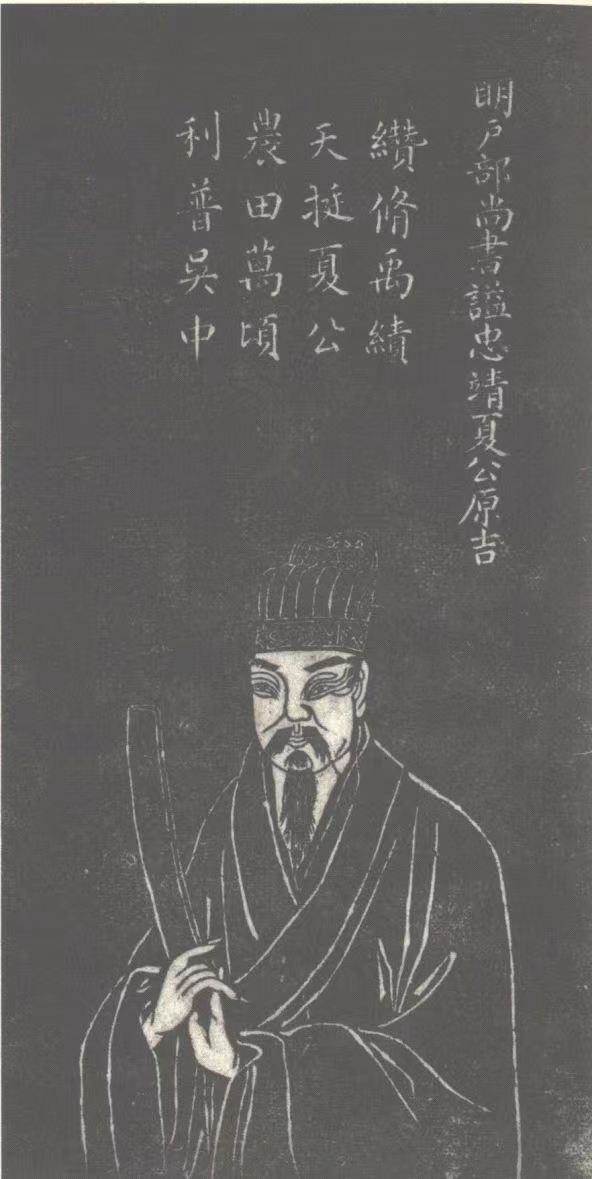 明户部尚書謚忠靖夏公原吉
纘脩禹績
天挺夏公
農田萬頃
利普吳中